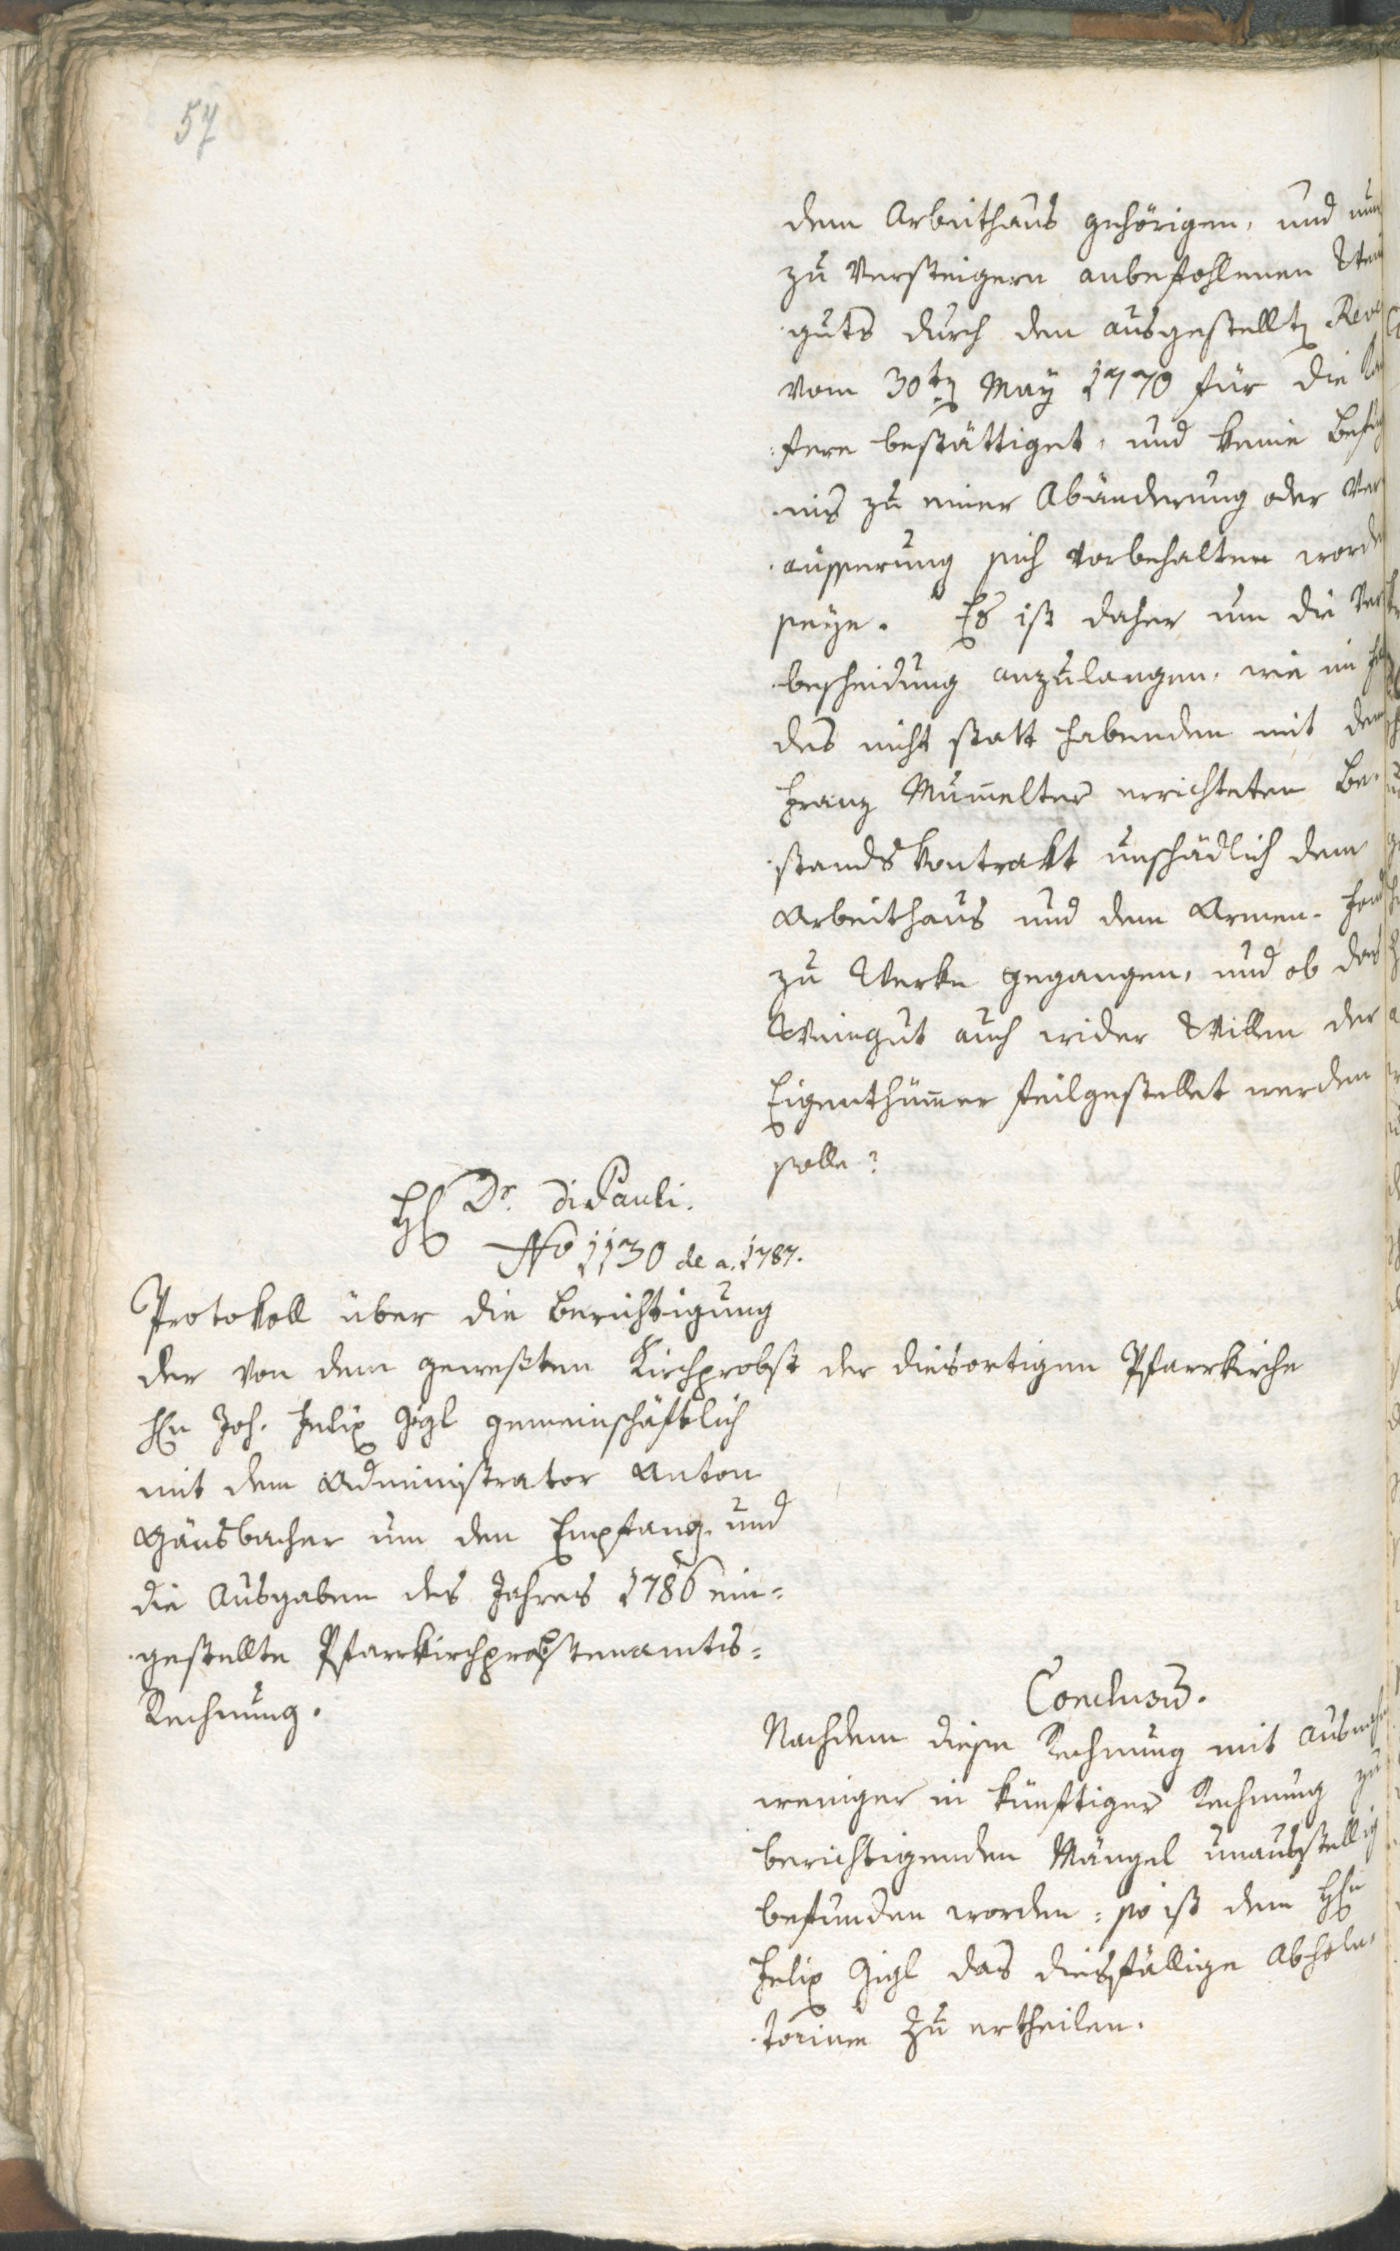 57
dem Arbeithaus gehörigen, und nun
zu versteigern anbefohlenen
guts durch den ausgestellten
vom 30ten May 1770 für die
fern bestättiget, und keine
niß zu einer Abänderung oder Ver
äusserung sich vorbehalten worde
seye. Es ist daher um die Ver
bescheidung anzulangen, wie im
des nicht statt habenden mit dem
Franz Mumelter errichteten Be-
stands Kontrakt unschädlich dem
Arbeithaus und dem Armen-Fond
zu Werke gegangen, und ob das
Weingut auch wider Willen der
Eigenthümmer feilgestellet werden
solle?
H Dr. diPauli.
No 1130 de a. 1787.
Protokoll über die Berichtigung
der von dem geweßten Kirchprobst der diesortigen Pfarrkirche
Hn Joh. Felix Gigl gemeinschäftlich
mit dem Administrator Anton
Gänsbacher um den Empfang und
die Ausgaben des Jahres 1786 ein=
gestellte Pfarrkirchprobstenamts=
Rechnung.
Conclusum.
Nachdem diese Rechnung mit Ausnahm
weniger in künftiger Rechnung zu
berichtigenden Mängel unausstellig
befunden worden: so ist dem Hn
Felix Gigl das diesfällige Absolu-
torium zu ertheilen.